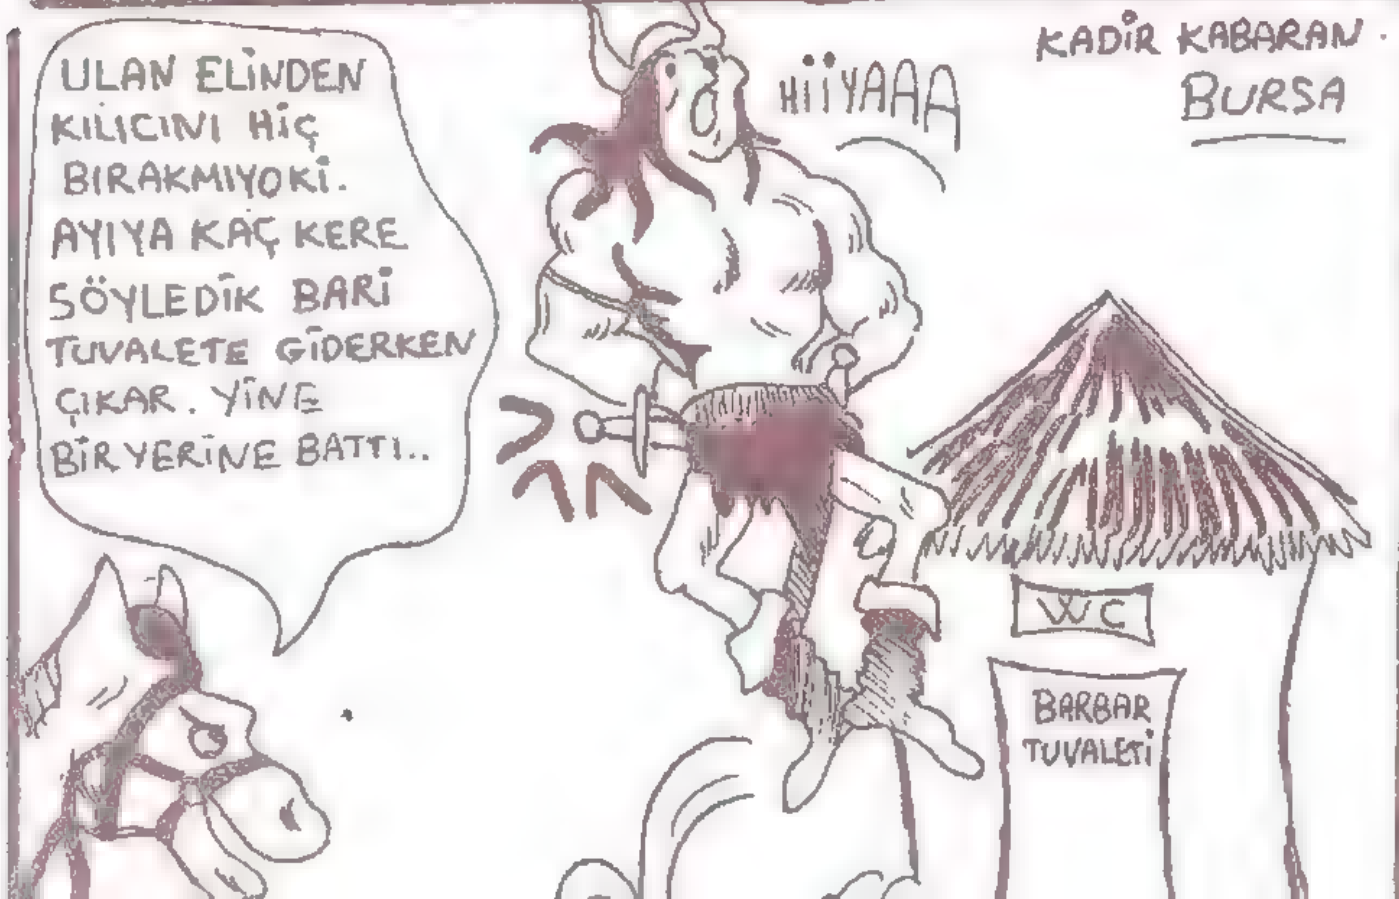 ULAN ELİNDEN
KILICINI HİÇ
BIRAKMIYOKİ.
AYIYA KAÇ KERE
SÖYLEDİK BARİ
TUVALETE GİDERKEN
ÇIKAR. YİNE
BİR YERİNE BATTI..
HİİYAAA
KADİR KABARAN
BURSA
WC
BARBAR
TUVALETİ